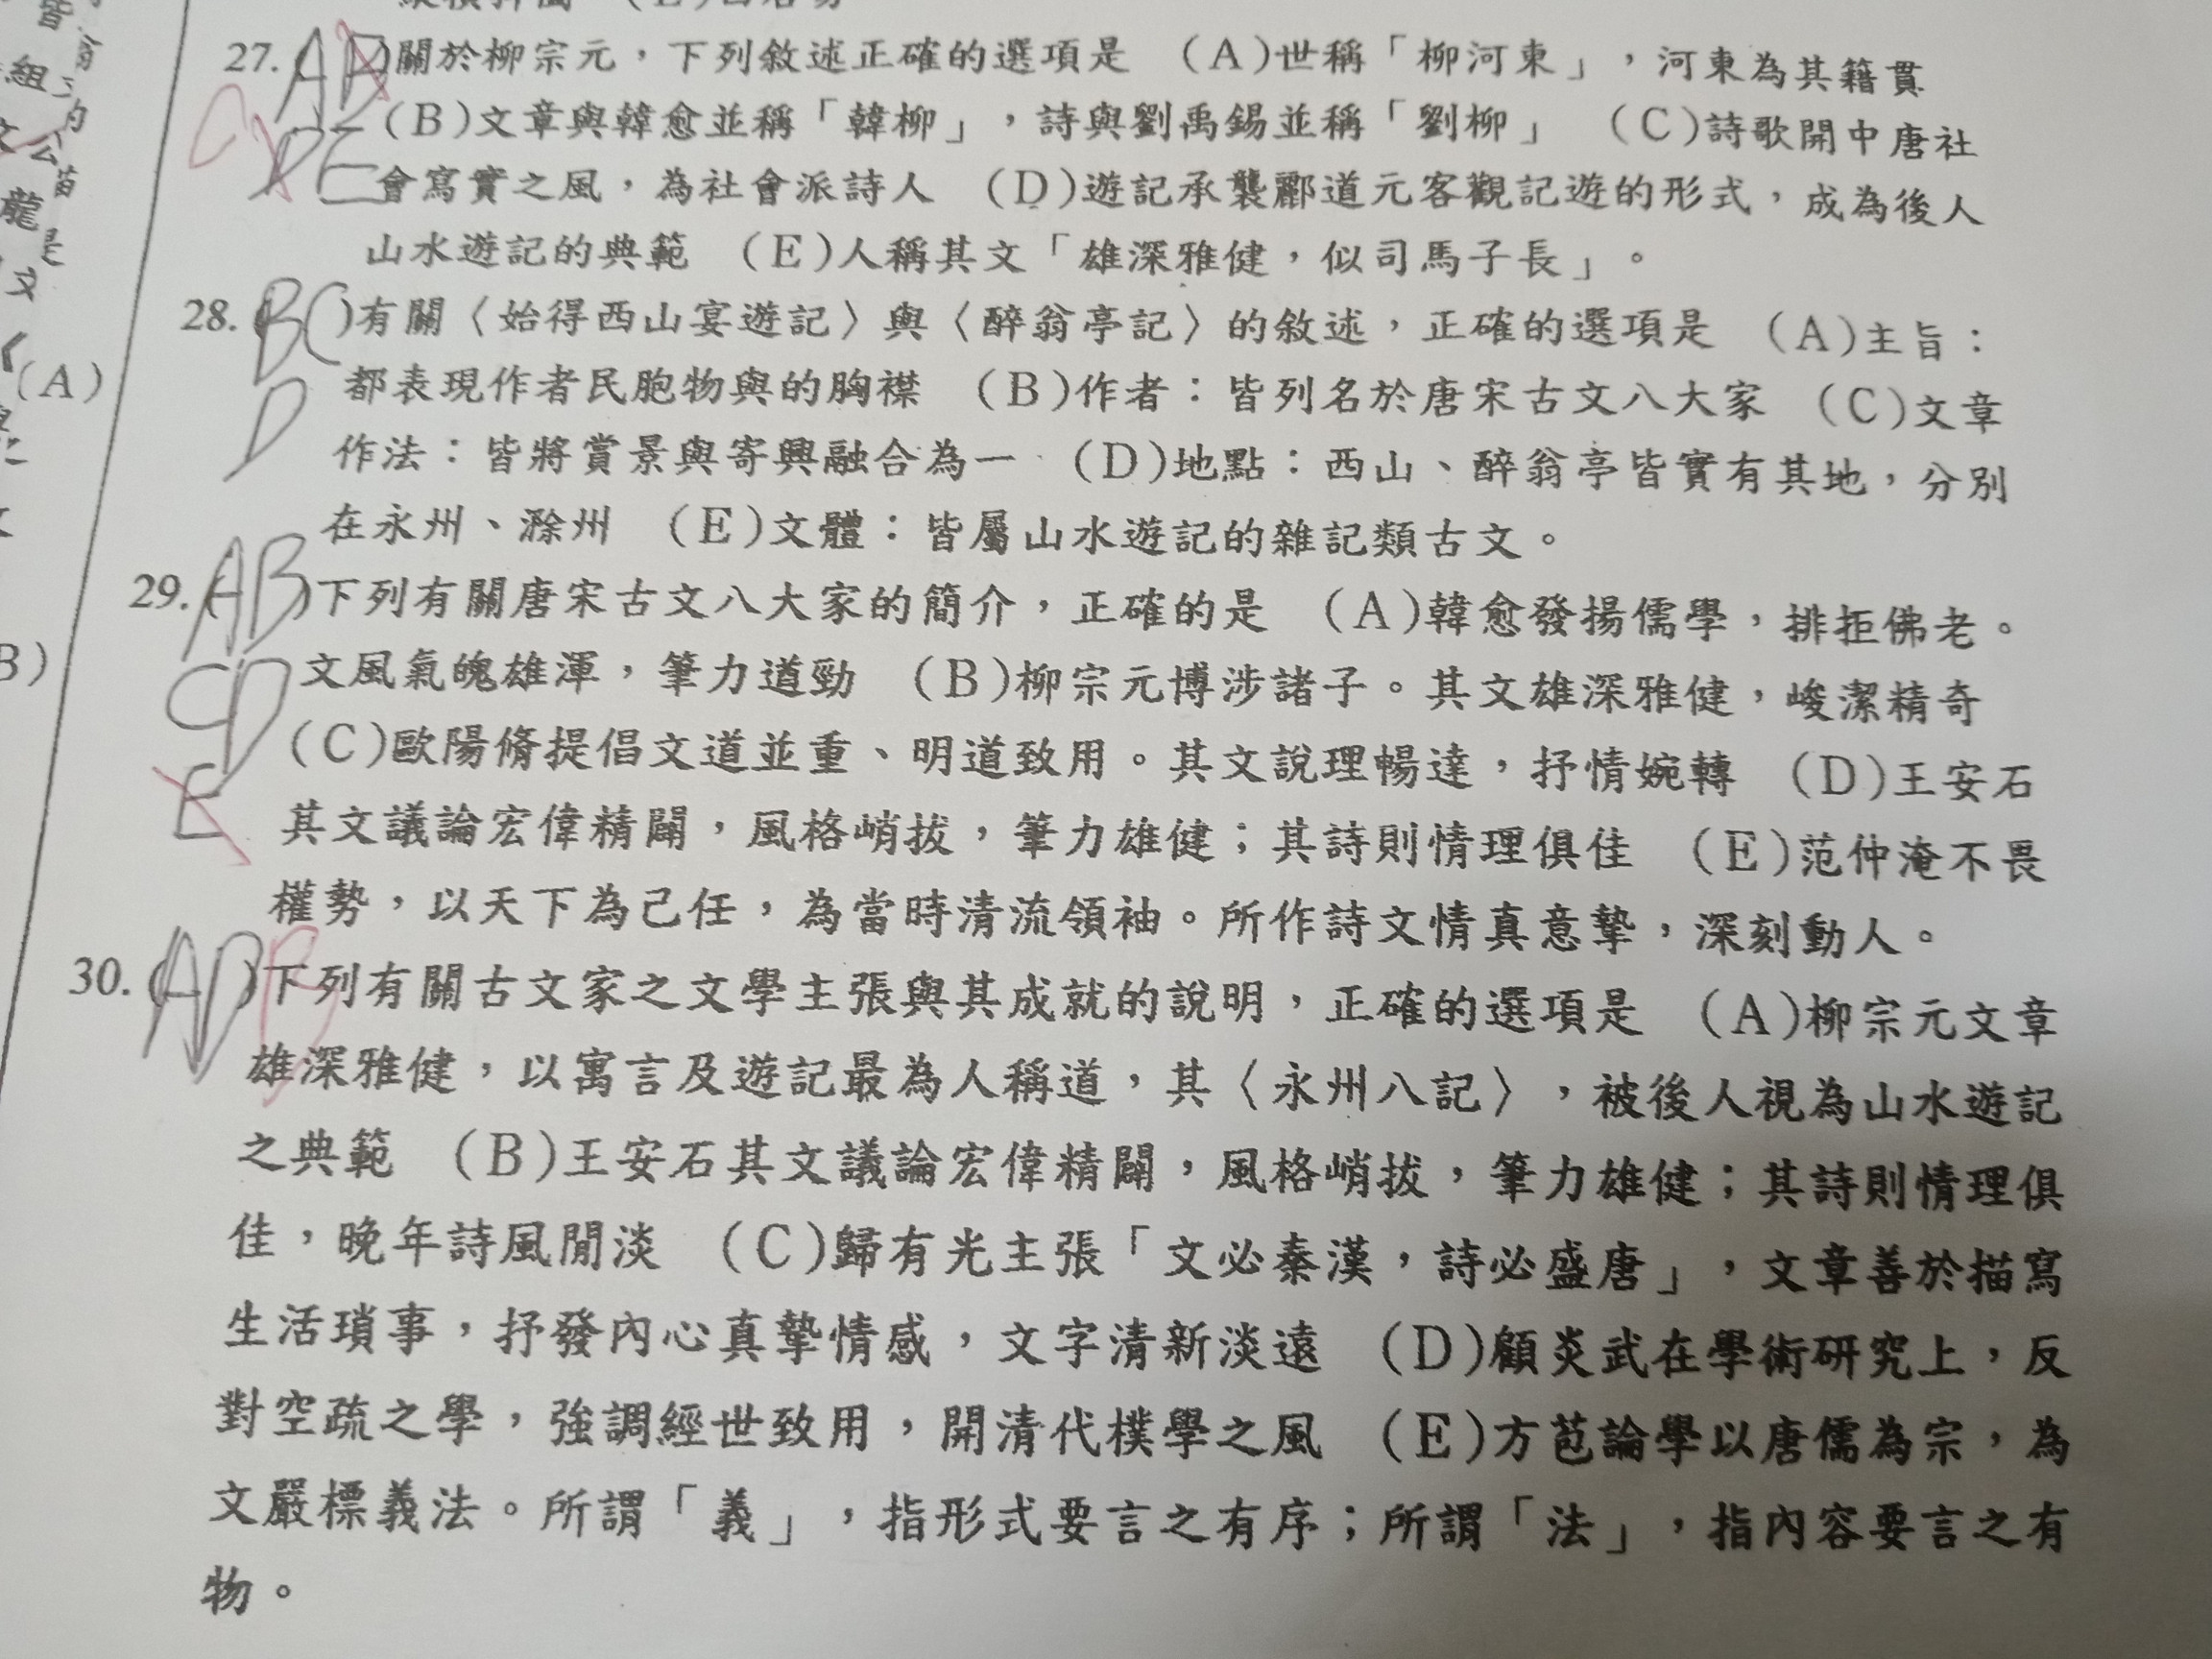 27.(AB)關於柳宗元，下列敘述正確的選項是　(A)世稱「柳河東」，河東為其籍貫
C DE (B)文章與韓愈並稱「韓柳」，詩與劉禹錫並稱「劉柳」　(C)詩歌開中唐社
會寫實之風，為社會派詩人　(D)遊記承襲酈道元客觀記遊的形式，成為後人
山水遊記的典範　(E)人稱其文「雄深雅健，似司馬子長」。
28.(BC)有關〈始得西山宴遊記〉與〈醉翁亭記〉的敘述，正確的選項是　(A)主旨：
D 都表現作者民胞物與的胸襟　(B)作者：皆列名於唐宋古文八大家　(C)文章
作法：皆將賞景與寄興融合為一　(D)地點：西山、醉翁亭皆實有其地，分別
在永州、滁州　(E)文體：皆屬山水遊記的雜記類古文。
29.(AB)下列有關唐宋古文八大家的簡介，正確的是　(A)韓愈發揚儒學，排拒佛老。
CD 文風氣魄雄渾，筆力遒勁　(B)柳宗元博涉諸子。其文雄深雅健，峻潔精奇
E (C)歐陽脩提倡文道並重、明道致用。其文說理暢達，抒情婉轉　(D)王安石
其文議論宏偉精闢，風格峭拔，筆力雄健；其詩則情理俱佳　(E)范仲淹不畏
權勢，以天下為己任，為當時清流領袖。所作詩文情真意摯，深刻動人。
30.(AD)B下列有關古文家之文學主張與其成就的說明，正確的選項是　(A)柳宗元文章
雄深雅健，以寓言及遊記最為人稱道，其〈永州八記〉，被後人視為山水遊記
之典範　(B)王安石其文議論宏偉精闢，風格峭拔，筆力雄健；其詩則情理俱
佳，晚年詩風閒淡　(C)歸有光主張「文必秦漢，詩必盛唐」，文章善於描寫
生活瑣事，抒發內心真摯情感，文字清新淡遠　(D)顧炎武在學術研究上，反
對空疏之學，強調經世致用，開清代樸學之風　(E)方苞論學以唐儒為宗，為
文嚴標義法。所謂「義」，指形式要言之有序；所謂「法」，指內容要言之有
物。
(A)